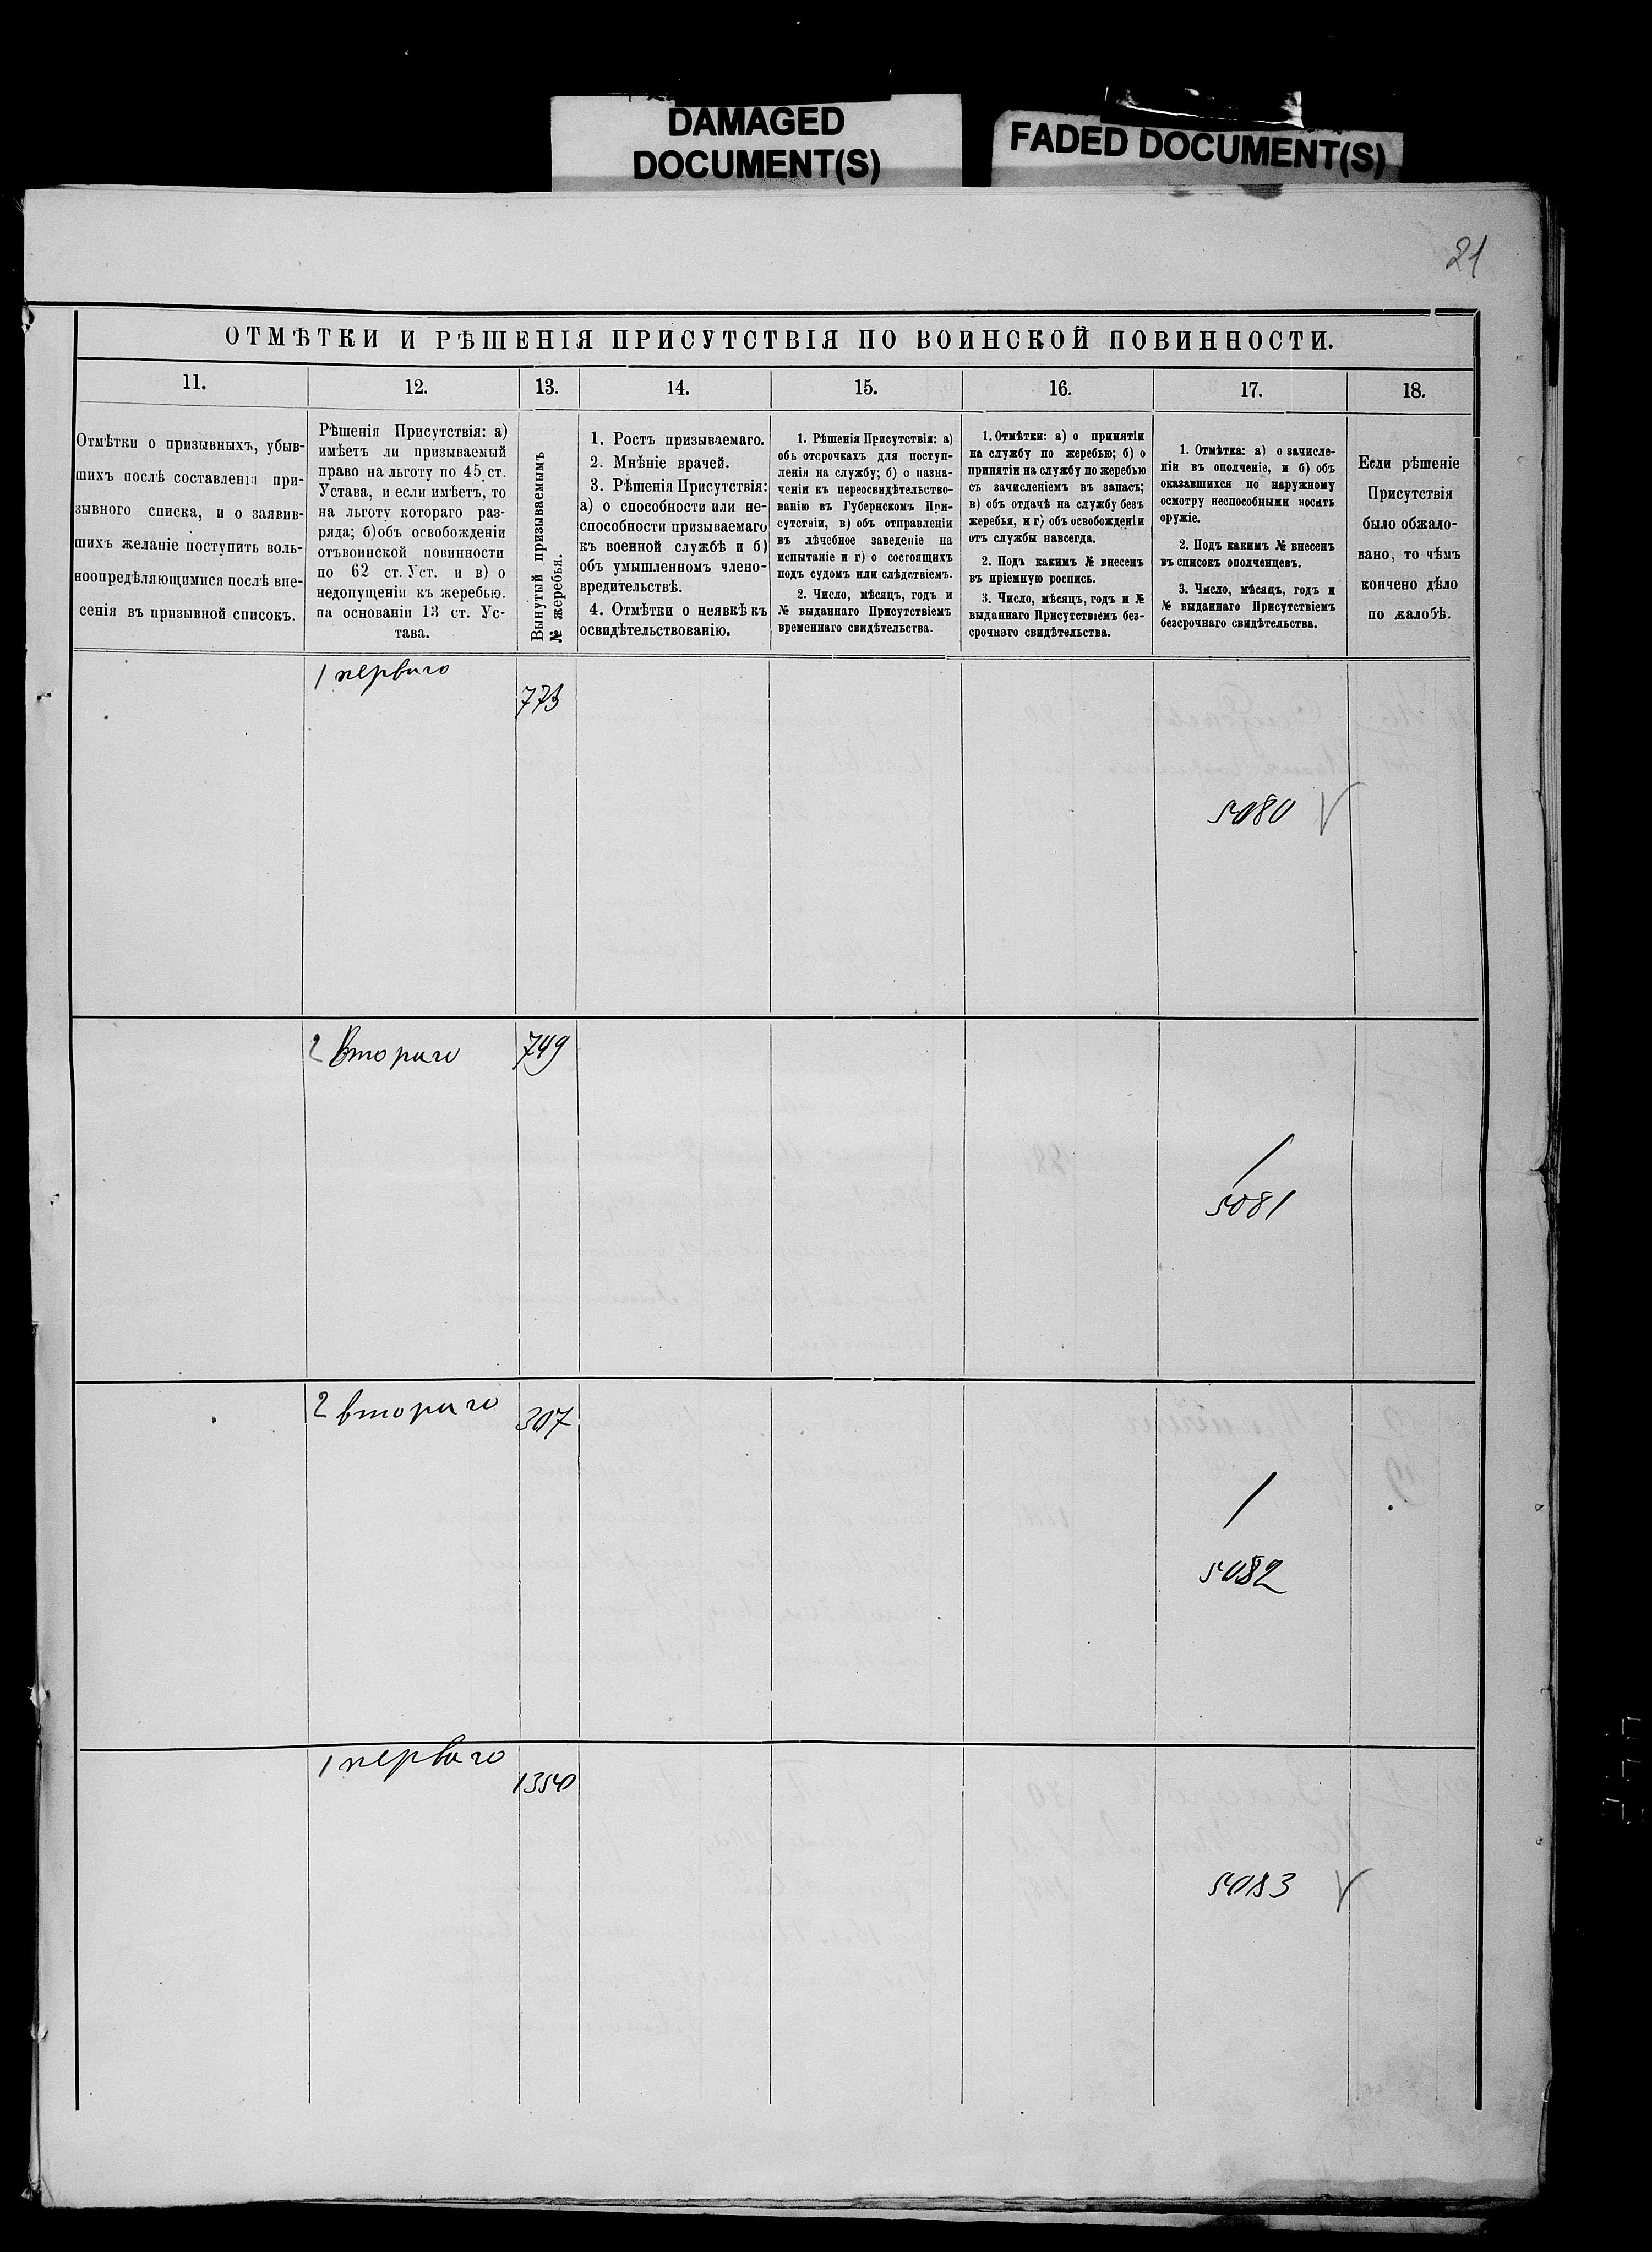 DAMAGED
DOCUMENT(S)
FADED DOCUMENT(S)
21
ОТМѢТКИ И РѢШЕНІЯ ПРИСУТСТВІЯ ПО ВОИНСКОЙ ПОВИННОСТИ.
11.
12.
13.
14.
15.
16.
17.
18.
Отмѣтки о призывныхъ, убыв-
шихъ послѣ составленія при-
зывного списка, и о заявив-
шихъ желаніе поступить воль-
ноопредѣляющимися послѣ вне-
сенія въ призывной списокъ.
Рѣшенія Присутствія: а)
имѣетъ ли призываемый
право на льготу по 45 ст.
Устава, и если имѣетъ, то
на льготу котораго раз-
ряда; б) объ освобожденіи
отъ воинской повинности
по 62 ст. Уст. и в) о
недопущеніи къ жеребью.
на основаніи 13 ст. Ус-
тава.
Вынутый призываемымъ
№ жеребья.
1. Ростъ призываемаго.
2. Мнѣніе врачей.
3. Рѣшенія Присутствія:
а) о способности или не-
способности призываемаго
къ военной службѣ и б)
объ умышленномъ члено-
вредительствѣ.
4. Отмѣтки о неявкѣ къ
освидѣтельствованію.
1. Рѣшенія Присутствія: а)
объ отсрочкахъ для поступ-
ленія на службу; б) о назна-
ченіи къ переосвидѣтельство-
ванію въ Губернскомъ При-
сутствіи, в) объ отправленіи
въ лѣчебное заведеніе на
испытаніе и г) о состоящихъ
подъ судомъ или слѣдствіемъ.
2. Число, мѣсяцъ, годъ и
№ выданнаго Присутствіемъ
временнаго свидѣтельства.
1. Отмѣтки: а) о принятіи
на службу по жеребью; б) о
принятіи на службу по жеребью
съ зачисленіемъ въ запасъ;
в) объ отдачѣ на службу безъ
жеребья, и г) объ освобожденіи
отъ службы навсегда.
2. Подъ какимъ № внесенъ
въ пріемную роспись.
3. Число, мѣсяцъ, годъ и №
выданнаго Присутствіемъ без-
срочнаго свидѣтельства.
1. Отмѣтка: а) о зачисле-
ніи въ ополченіе, и б) объ
оказавшихся по наружному
осмотру неспособными носить
оружіе.
2. Подъ какимъ № внесенъ
въ списокъ ополченцевъ.
3. Число, мѣсяцъ, годъ и
№ выданнаго Присутствіемъ
безсрочнаго свидѣтельства.
Если рѣшеніе
Присутствія
было обжало-
вано, то чѣмъ
кончено дѣло
по жалобѣ.
1 перваго
773
5080 V
2 Втораго
749
/
5081
2 втораго
307
/
5082
1 перваго
1350
5083 V